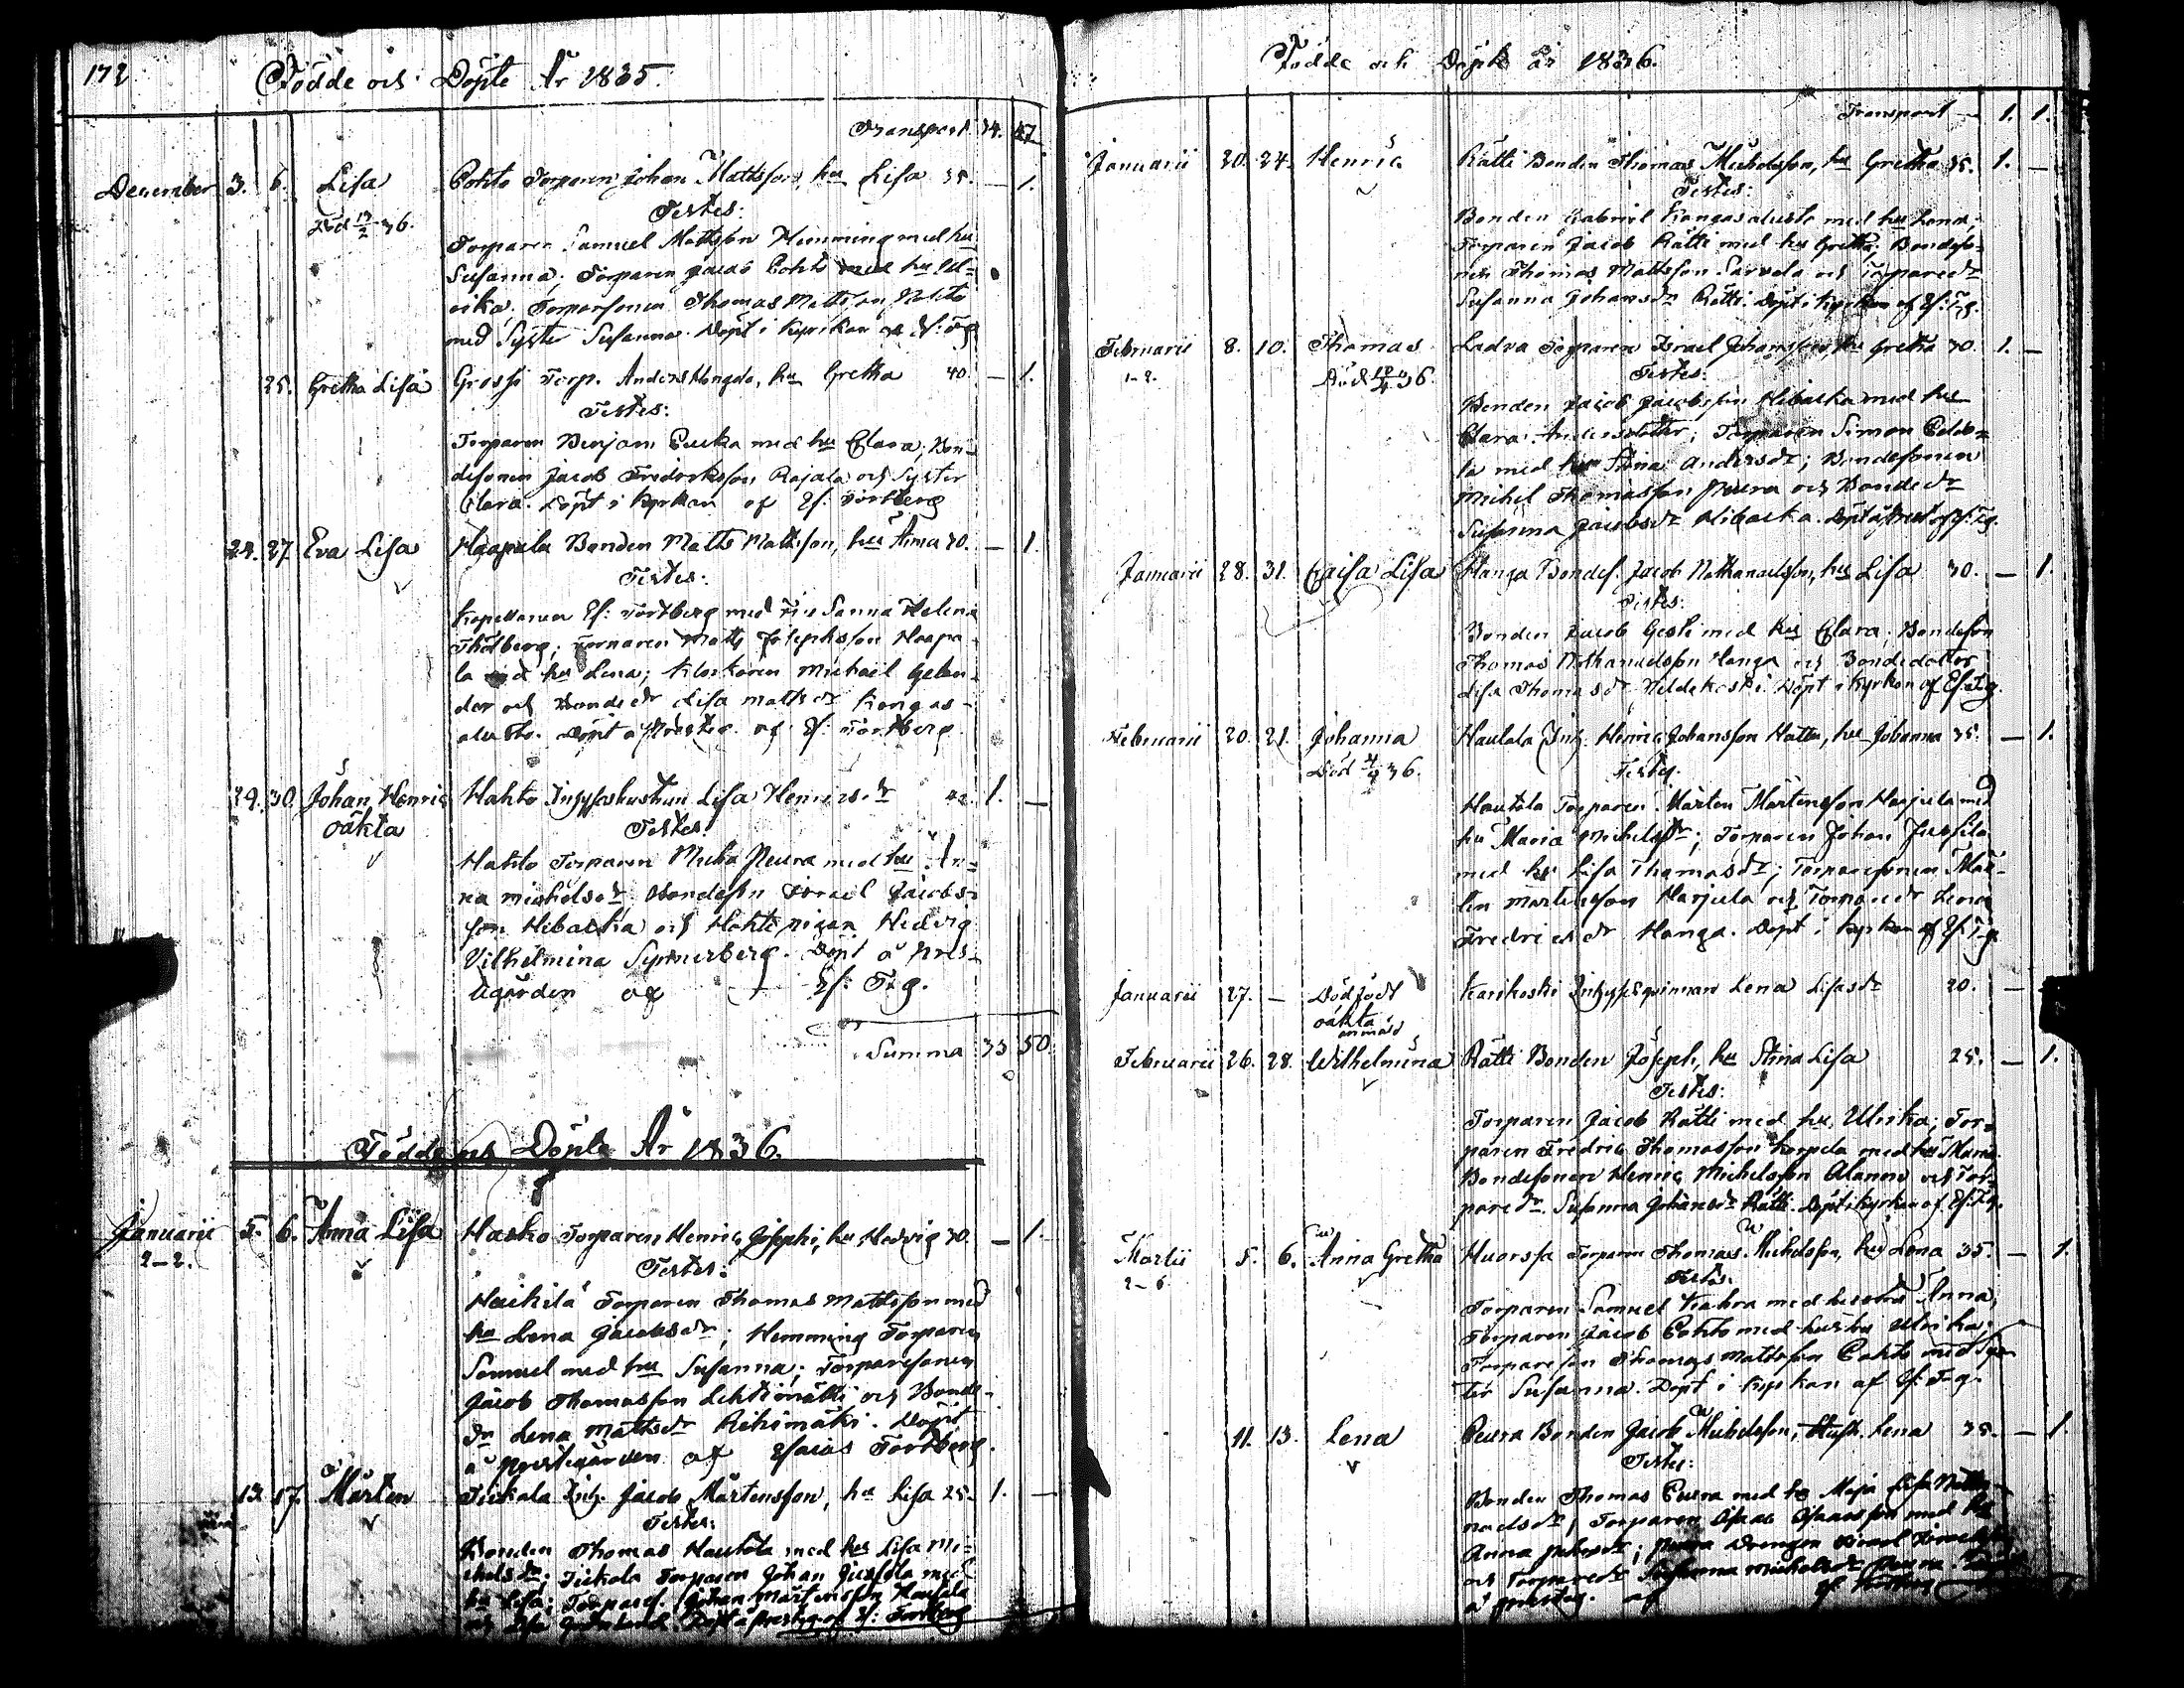 172
Födde och Döpte År 1835.
Transport 34. 47
December 3. 6. Lisa Pohto Torparen Johan Mattsson, hu Lisa 35. — 1.
Död 17/2 36. Testes:
Torparen Samuel Mattsson Hemming med hu
Susanna; Torparen Jacob Pohto med hu Ul-
rika. Torparsonen Thomas Mattsson Pohto
med Syster Susanna. Döpt i Kyrkan af Es: T-g
25. Gretha Lisa Grossi Torp. Anders Hongola, hu Gretha 40. — 1.
Testes:
Torparen Benjam. Peuka med hu Clara; Bon-
desonen Jacob Fredriksson Rajala och Syster
Clara. Döpt i Kyrkan af Es. Torkberg
24. 27 Eva Lisa Haapala Bonden Matts Mattsson, hu Anna 30. — 1.
Testes:
Kapellanen Es: Torkberg med Fru Sanna Helena
Tholberg; Torparen Matts Josephsson Haapa-
la med hu Lena; Klockaren Michael Gelan-
der och Bondedr Lisa Mattsdr Kangas-
alusta. Döpt å Prästeg. af Es: Torkberg
29. 30. Johan Henric Hahto Inhyseshustrun Lisa Henricsdr 42. 1. —
oäkta Testes:
Hahto Torparen Micka Peura med hu An-
na Michelsdr Bondeson Israel Jacobs-
son Hibacka och Hahto pigan Hedvig
Vilhelmina Synnerberg. Döpt å Pres-
tgården af Es: T-g.
Summa 35 50.
Födde och Döpte År 1836.
Januarii 5. 6. Anna Lisa Harko Torparen Henric Josephi, hu Hedvig 30. — 1.
2-2. Testes:
Heikilä Torparen Thomas Mattsson med
hu Lena Jacobsdr; Hemming Torparen
Samuel med hu Susanna; Torparesonen
Jacob Thomasson Lehtimätti och Bonde-
dr Lena Mattsdr Rihimäki. Döpt
å Prestegården af Esaias Torkberg.
13. 17. Mårten Tickala Inh. Jacob Mårtensson, hu Lisa 25. 1. —
Testes:
Bonden Thomas Hautala med hu Lisa Mi-
chelsdr; Tickala Torparen Johan Jussila med
hu Lisa; Torpares. Johan Mårtensson Hautala
och Lisa Döpt å Presteg. af Es: Torkberg
Födde och Döpte år 1836.
Transport — 1. 1.
Januarii 20. 24. Henric Rätti Bonden Thomas Michelsson, hu Gretha 35. 1. —
Testes:
Bonden Gabriel Kangasalusta med hu Lena;
Torparen Jacob Rätti med hu Gretha; Bondeso-
nen Thomas Mattsson Sarvela och Torparedr
Susanna Johansdr Rätti. Döpt i Kyrkan af Es: T-g.
Februarii 8. 10. Thomas Ladva Torparen Israel Johansson, hu Gretha 30. 1. —
1-2. Död 18/4 36. Testes:
Bonden Jacob Jacobsson Hibacka med hu
Clara Andersdotter; Torparen Simon
la med hu Stina Andersdr; Bondesonen
Michel Thomasson Peura och Bondedr
Susanna Jacobsdr Hibacka. Döpt å Prest. af Es: T-g.
Januarii 28. 31. Caisa Lisa Hanga Bondes. Jacob Nathanaelsson, hu Lisa 30. — 1.
Testes:
Bonden Jacob Gesti med hu Clara; Bondeson
Thomas Nathanaelsson Hanga och Bondedotter
Lisa Thomasdr Keldekoski. Döpt i Kyrkan af Es: T-g.
Februarii 20. 21. Johanna Hautala Inh. Henric Johansson Hatta, hu Johanna 35. — 1.
Död 4/4 36. Testes.
Hautala Torparen Mårten Mårtensson Harjula med
hu Maria Michelsdr; Torparen Johan Jussila
med hu Lisa Thomasdr; Torparesonen Mår-
ten Mårtensson Harjula och Torparedr Lena
Fredricsdr Hanga. Döpt i Kyrkan af Es: T-g.
Januarii 27. — Dödfödt Karikoski Inhyseqvinnan Lena Lisasdr 20. —
oäkta
anmäld
Februarii 26. 28. Wilhelmina Rätti Bonden Joseph, hu Stina Lisa 25. — 1.
Testes:
Torparen Jacob Rätti med hu Ulrika; Tor-
paren Fredric Thomasson Korpela med hu Maria
Bondesonen Henric Michelsson Alanne och Tor-
paredr. Susanna Johansdr Rätti. Döpt i Kyrkan af Es: T-g.
Martii 5. 6. Anna Gretha Huorssa Torparen Thomas Michelsson, hu Lena 35. — 1.
2-6 Testes.
Torparen Samuel Keahra med hustru Anna;
Torparen Jacob Pohto med hustru Ulrika;
Torpareson Thomas Mattsson Pohto med Sys-
ter Susanna. Döpt i Kyrkan af Es: T-g.
11. 13. Lena Peura Bonden Jacob Michelsson, Hust. Lena 35. — 1.
Testes:
Bonden Thomas Peura med hu Maja Lisa
Torparen Isaac Isaacsson med hu
Anna Peura Drengen Israel
och Torparedr Susanna Michelsdr Peura.
å Presteg. af Es: Torkberg